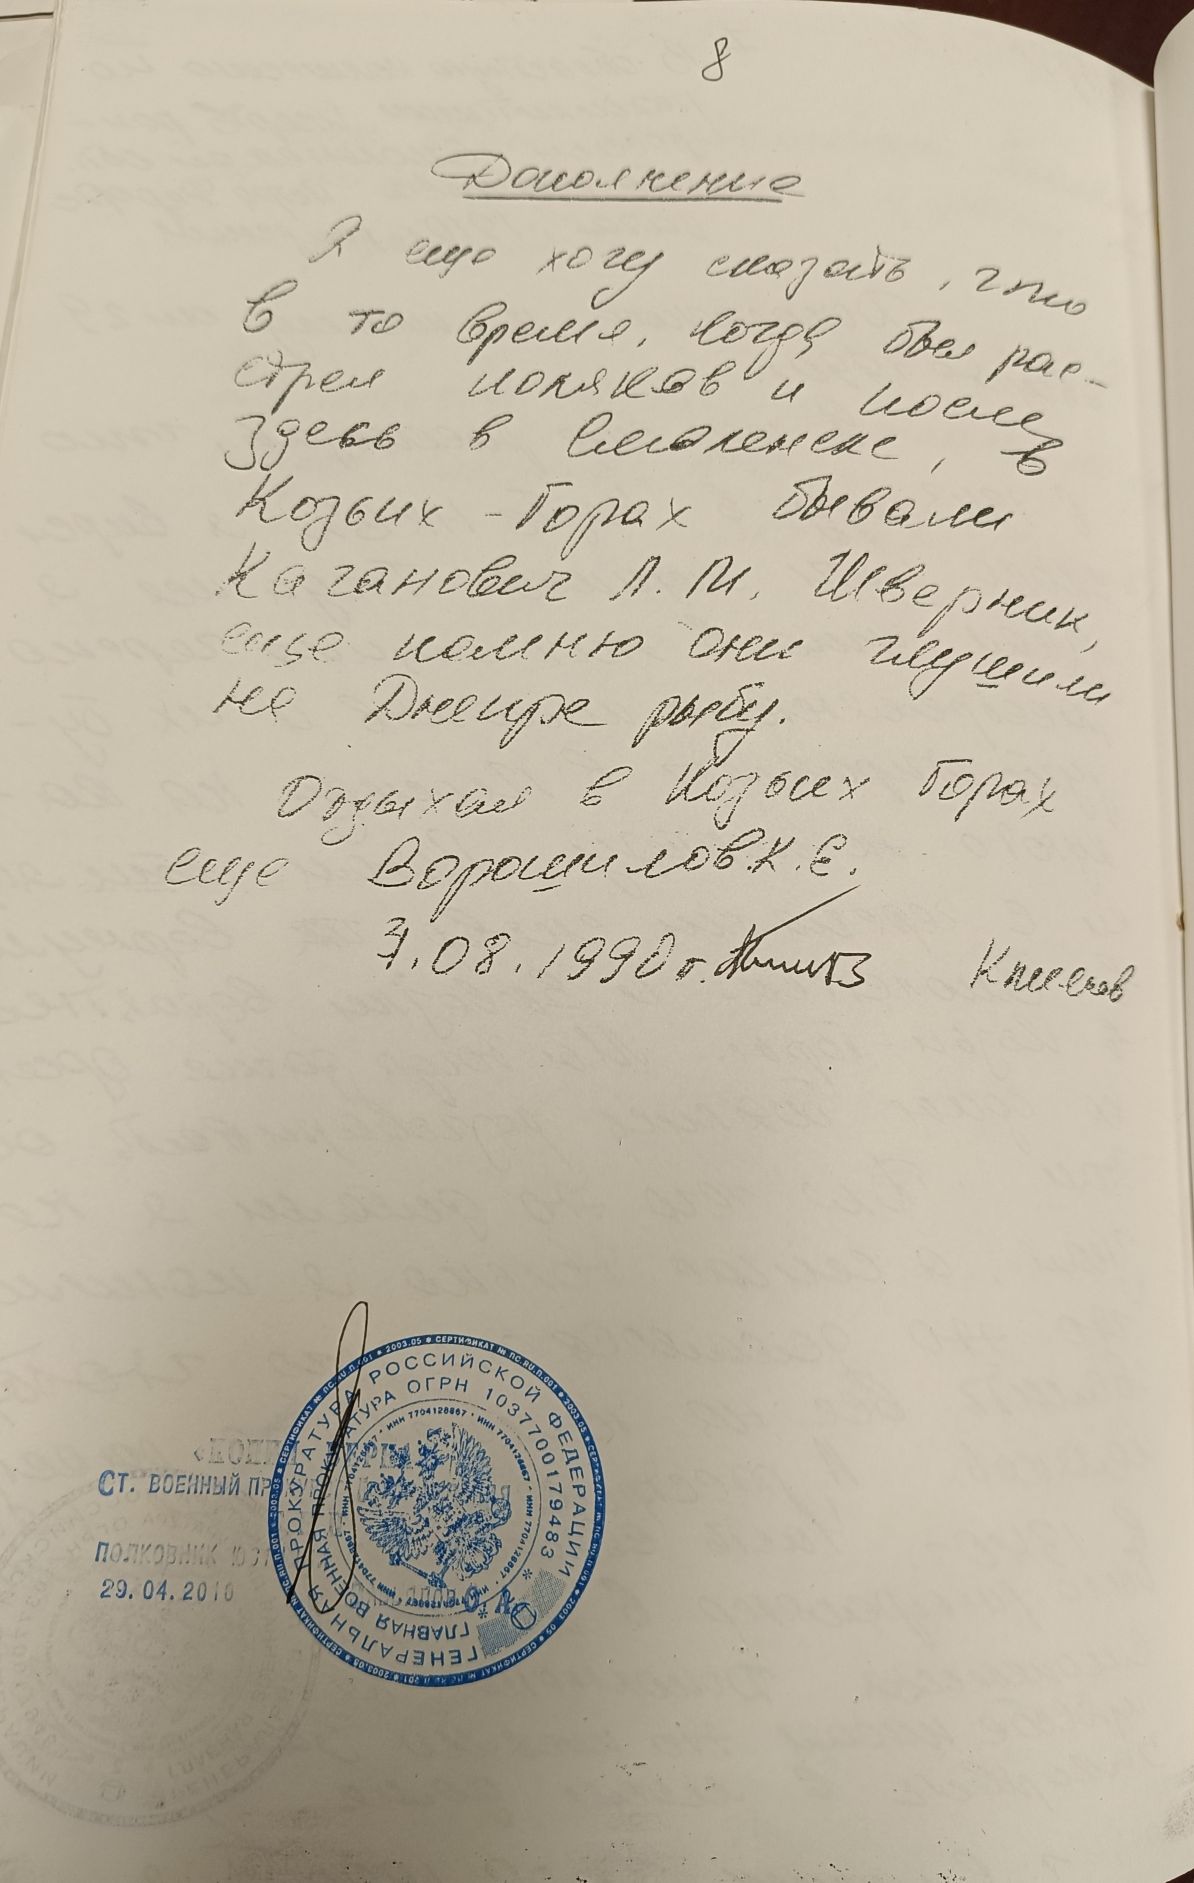 8
Дополнение
Я еще хочу сказать, что
в то время, когда был рас-
стрел поляков и после
здесь в Смоленске, в
Козьих-Горах бывали
Каганович Л. М. Шверник,
еще помню они глушили
на Днепре рыбу.
Отдыхал в Козьих Горах
еще Ворошилов К. Е.
7.08.1990 г. Климов
СТ. ВОЕННЫЙ
ПОЛКОВНИК ЮСТ
29.04.2010
ГЕНЕРАЛЬНАЯ ПРОКУРАТУРА РОССИЙСКОЙ ФЕДЕРАЦИИ
ГЛАВНАЯ ВОЕННАЯ ПРОКУРАТУРА ОГРН 1037700179483
ИНН 7704128867 * ИНН 7704128867 * ИНН 7704128867
* 2003.05 * СЕРТИФИКАТ № ПС.RU.П.001 * 2003.05 *